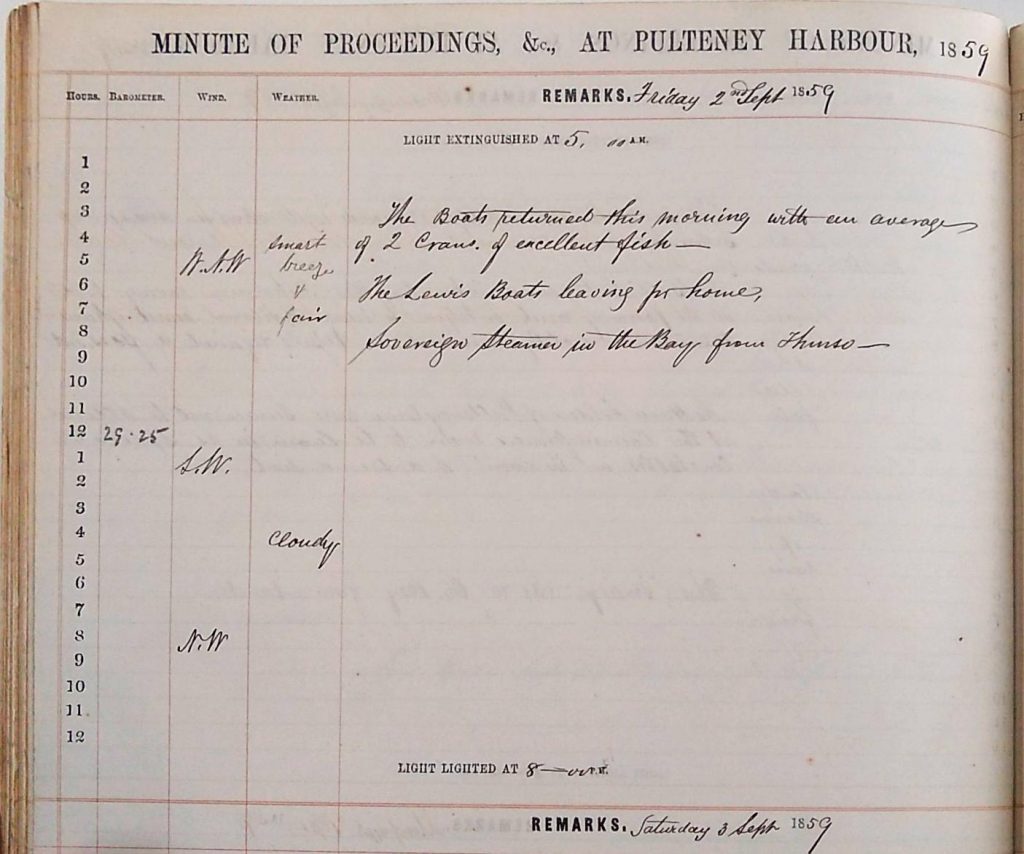 MINUTE OF PROCEEDINGS, &c., AT PULTENEY HARBOUR, 1859
HOURS. BAROMETER. WIND. WEATHER. REMARKS. Friday 2nd Sept 1859
LIGHT EXTINGUISHED AT 5, 00 A.M.
1
2
3 The Boats returned this morning with an average
4 smart of 2 Crans. of excellent fish —
5 W.N.W breeze
6 & The Lewis Boats leaving for home,
7 fair
8 Sovereign Steamer in the Bay from Thurso —
9
10
11
12 29.25
1 S.W.
2
3
4 Cloudy
5
6
7
8 N.W
9
10
11
12
LIGHT LIGHTED AT 8—00 P.M.
REMARKS. Saturday 3 Sept 1859